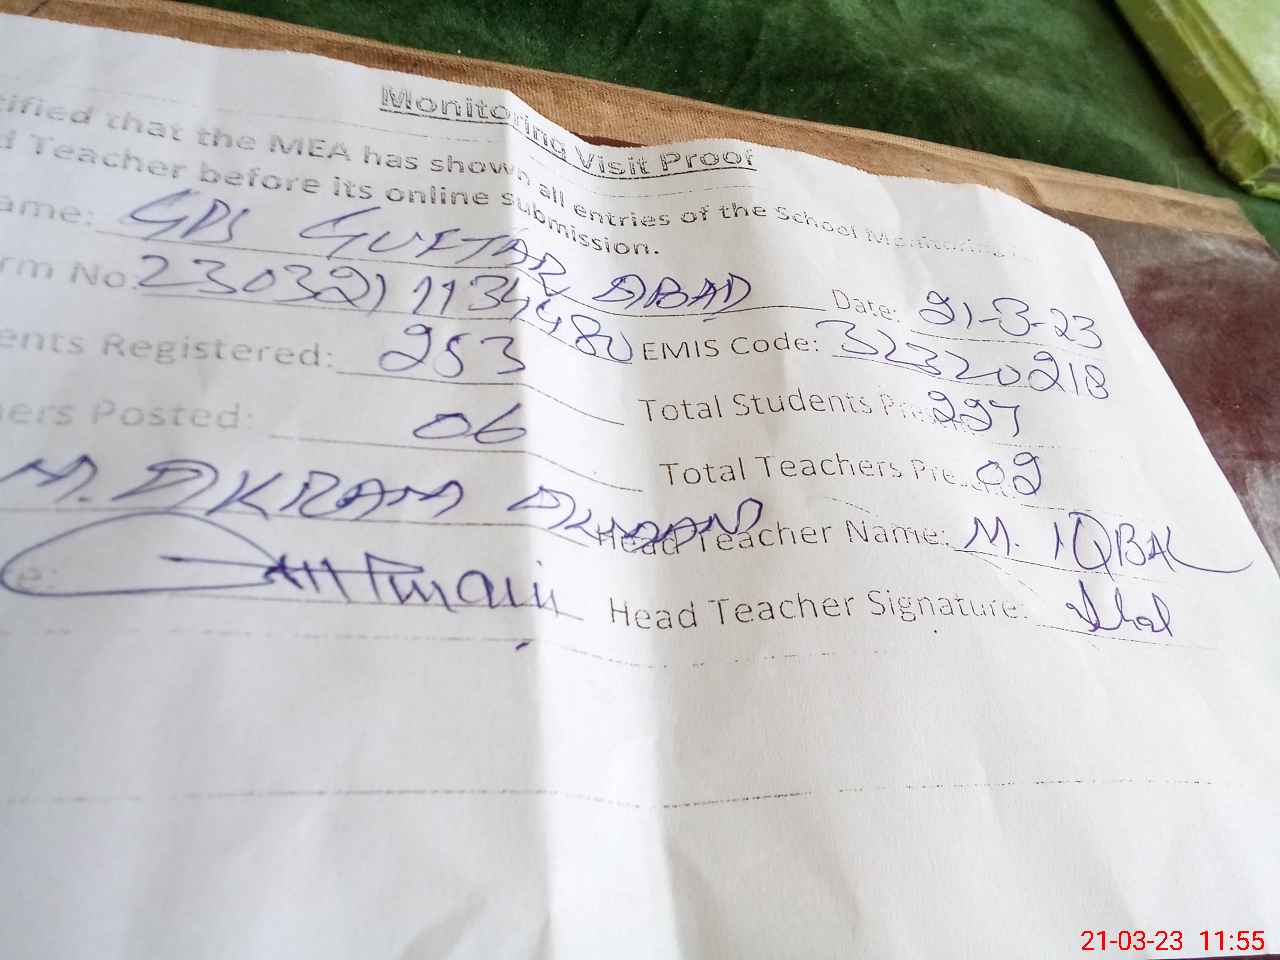 Monitoring Visit Proof
tified that the MEA has shown all entries of the School Monitoring
d Teacher before its online submission.
ame: GPS GUFTAR ABAD Date: 21-3-23
rm No: 2303211134480 EMIS Code: 32320218
ents Registered: 253 Total Students Present 227
hers Posted: 06 Total Teachers Present 02
M. AKRAM Head Teacher Name: M. IQBAL
e: Head Teacher Signature:
21-03-23 11:55